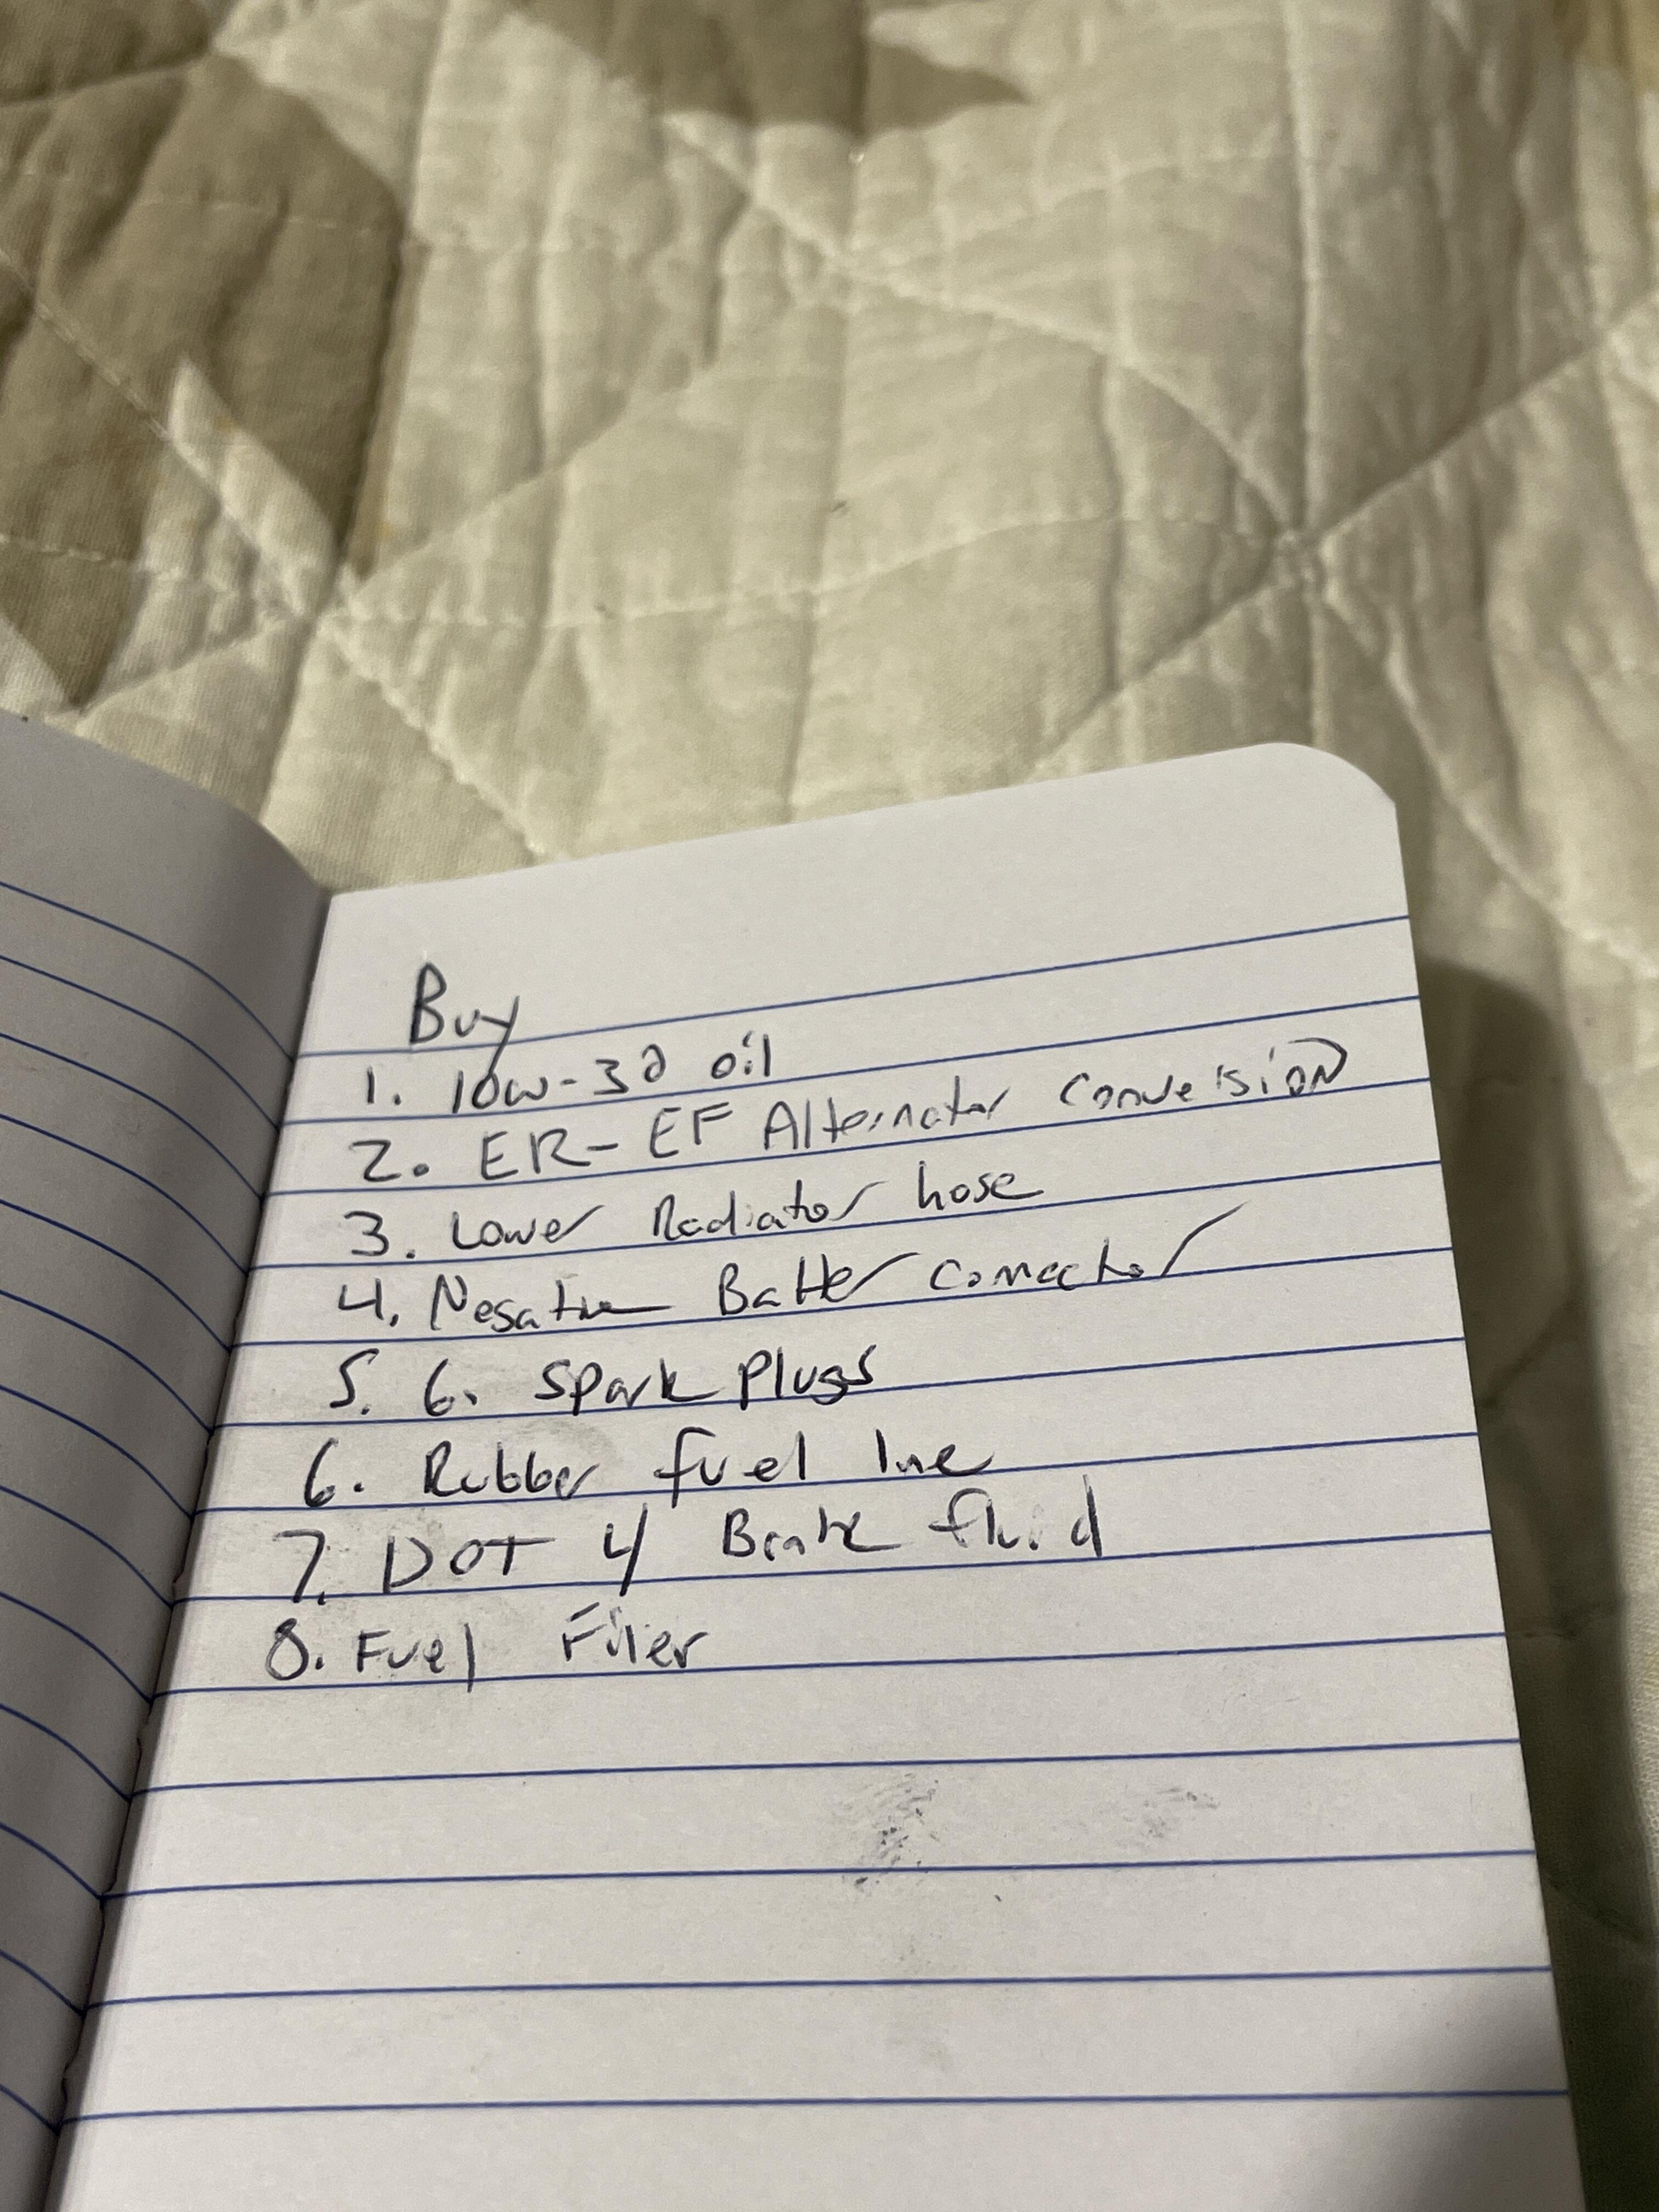 Buy
1. 10w-30 oil
2. ER-EF Alternator conversion
3. Lower Radiator hose
4. Negative Batter connector
5. 6. Spark Plugs
6. Rubber fuel line
7. DOT 4 Brake fluid
8. Fuel Filer